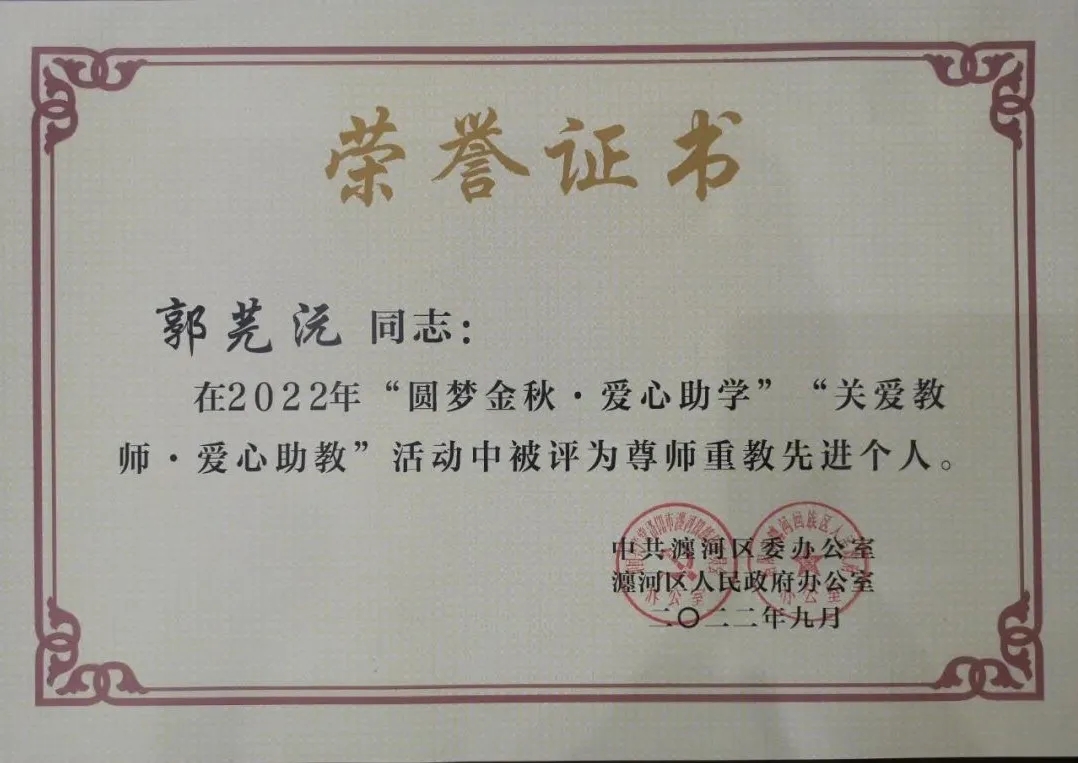 荣誉证书
郭芫沅 同志：
在2022年“圆梦金秋·爱心助学”“关爱教
师·爱心助教”活动中被评为尊师重教先进个人。
中共瀍河区委办公室
瀍河区人民政府办公室
二〇二二年九月
办公室
办公室